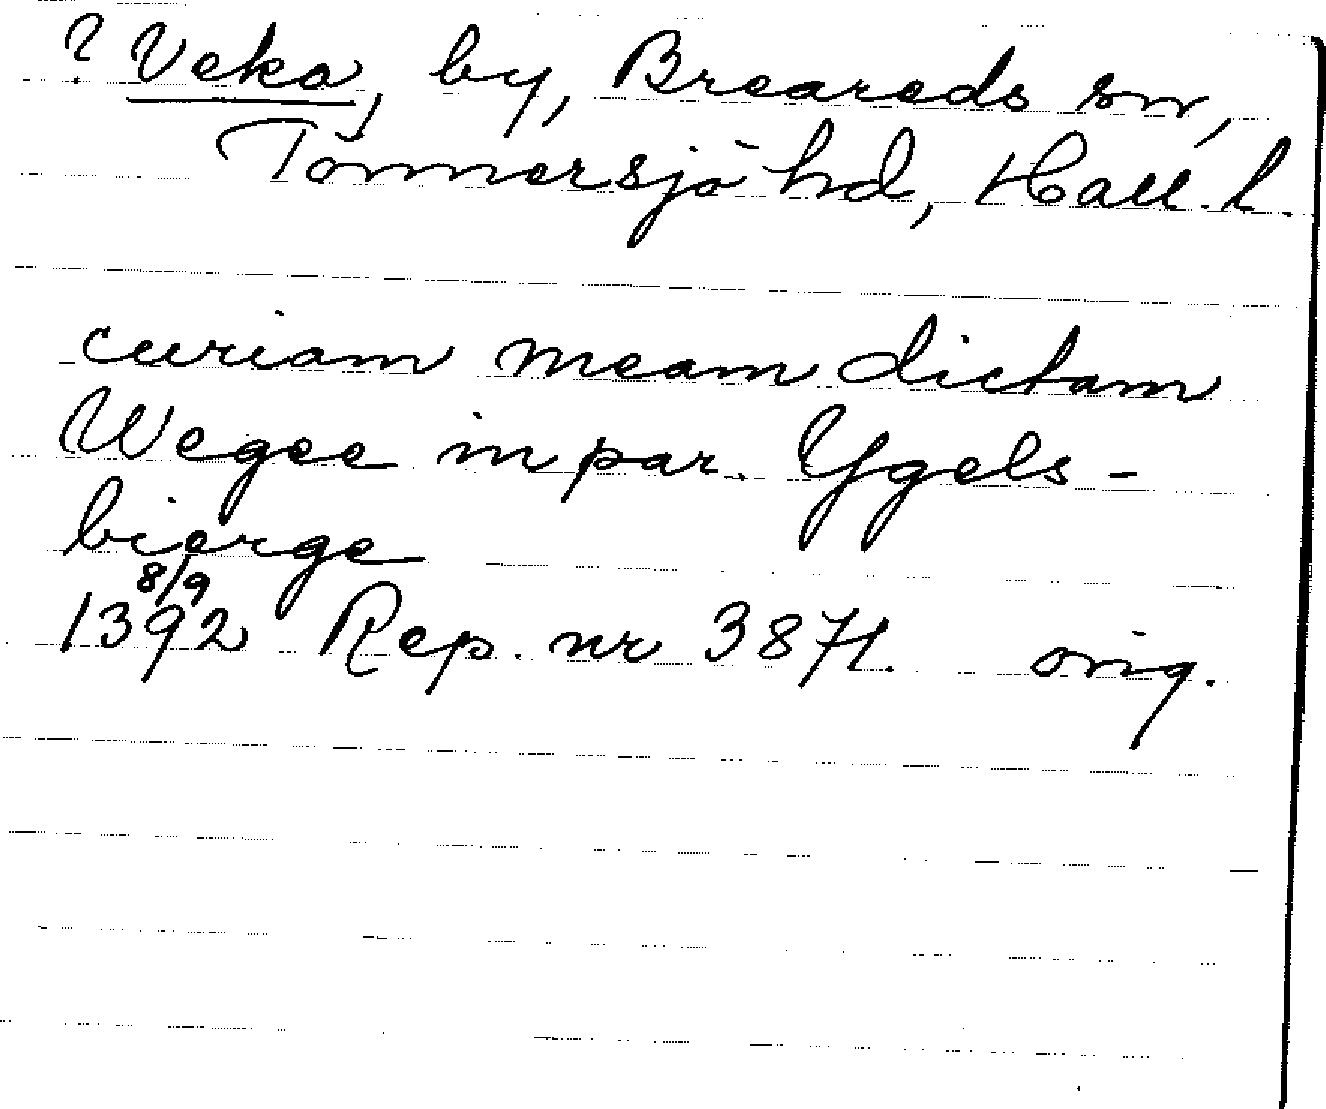 ? Veka, by, Breareds sn,
Tönnersjö hd, Hall. l.
curiam meam dictam
Wegee in par. Ygels-
bierge
8/9
1392 Rep. nr 3871. orig.